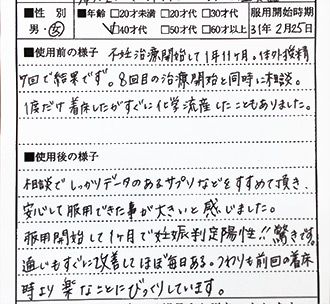 ■性別 ■年齢 □20才未満 □20才代 □30才代 服用開始時期
男・女 ☑40才代 □50才代 □60才以上 31年2月25日
■使用前の様子 不妊治療開始して1年11ヶ月。体外授精
7回で結果でず。8回目の治療開始と同時に相談。
1度だけ着床したがすぐに化学流産したこともありました。
■使用後の様子
相談でしっかりデータのあるサプリなどをすすめて頂き、
安心して服用できた事が大きいと感じました。
服用開始して1ヶ月で妊娠判定陽性!!驚きです。
通じもすぐに改善してほぼ毎日ある。つわりも前回の着床
時より楽なことにびっくりしています。